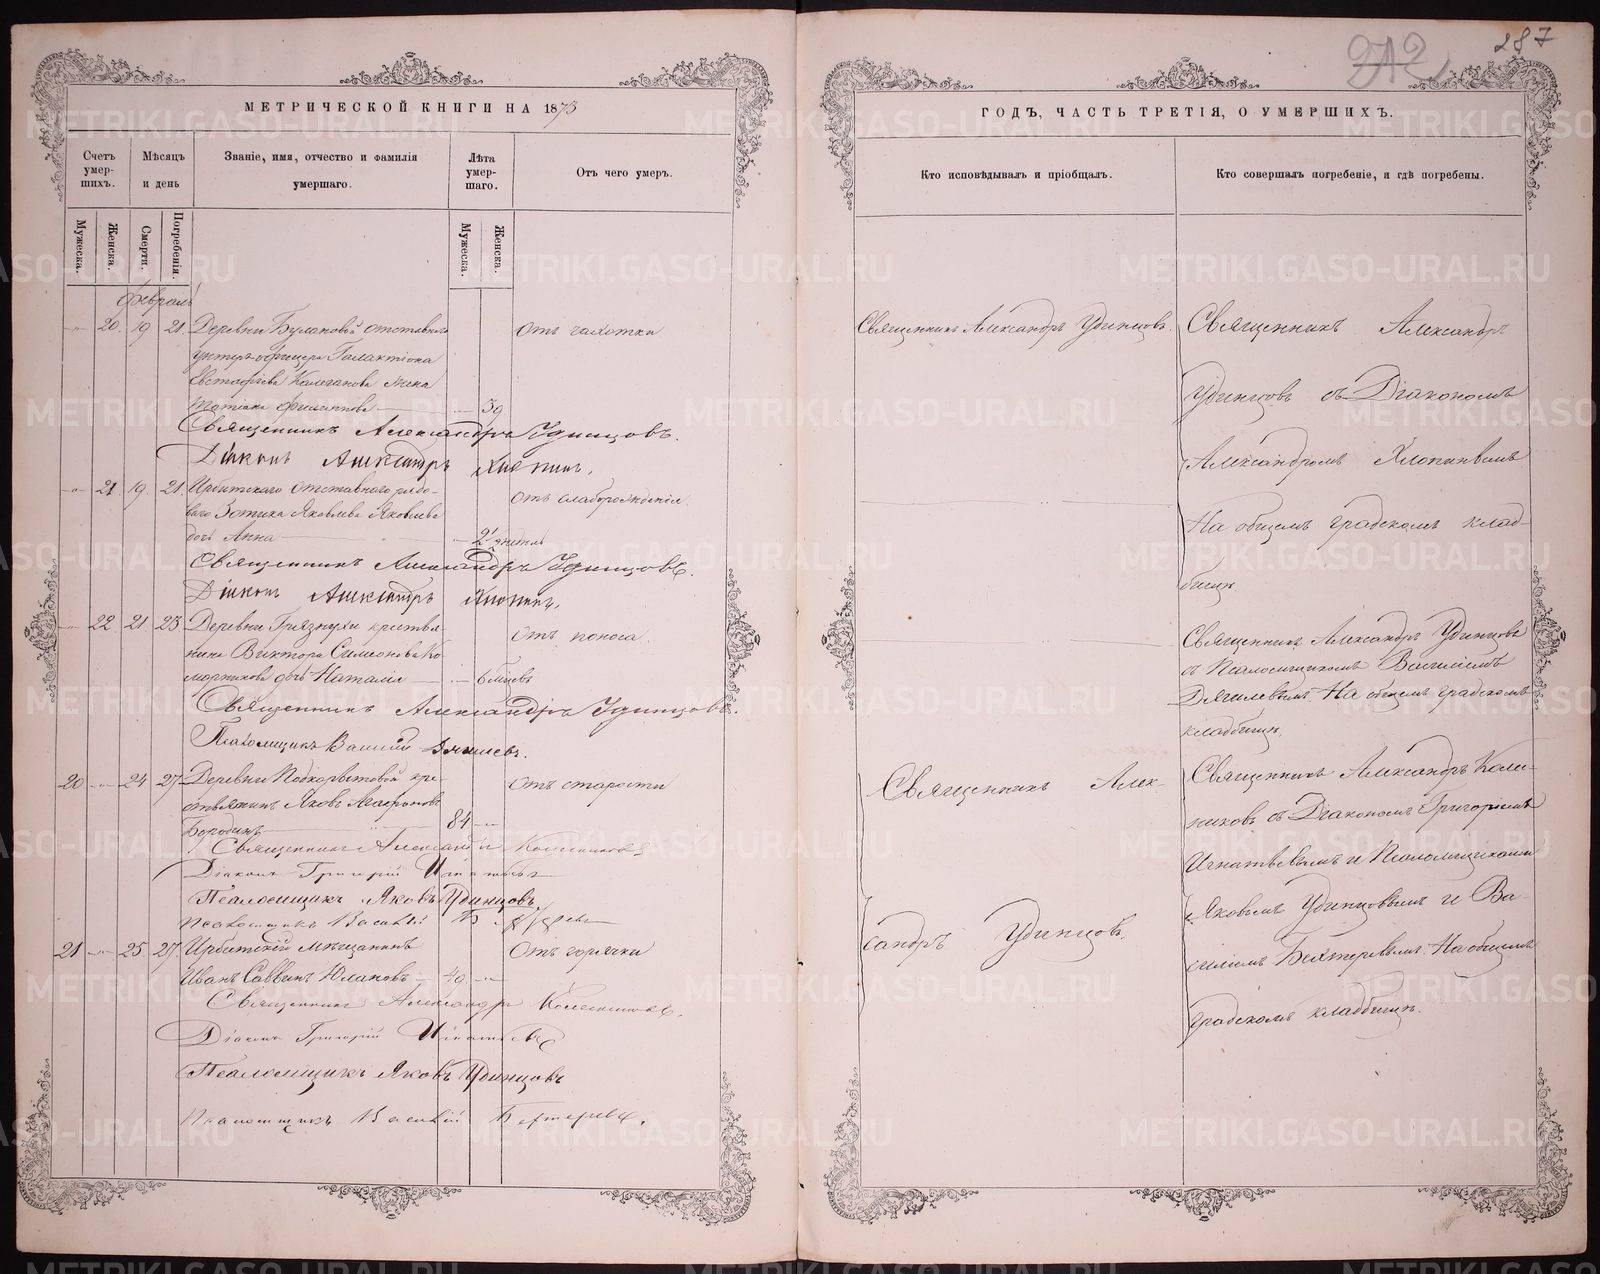 212
287
МЕТРИЧЕСКОЙ КНИГИ НА 1873
ГОДЪ, ЧАСТЬ ТРЕТІЯ, О УМЕРШИХЪ.
Счетъ умер-шихъ.
Мѣсяцъ и день
Званіе, имя, отчество и фамилія умершаго.
Лѣта умер-шаго.
Отъ чего умеръ.
Кто исповѣдывалъ и пріобщалъ.
Кто совершалъ погребеніе, и гдѣ погребены.
Мужеска.
Женска.
Смерти.
Погребенія.
Мужеска.
Женска.
Февраль
20 19 21 Деревни Булановой отставнаго
унтеръ-офицера Галактіона
Евстафіева Калеганова жена
Татіана Филиппова 59
Отъ чахотки
Священникъ Александръ Удинцовъ.
Діаконъ Александръ Хлопинъ.
21 19 21 Ирбитскаго отставнаго рядо-
ваго Зотика Яковлева Яковлева
дочь Анна 2½ недѣл
Отъ слаборожденія
Священникъ Александръ Удинцовъ.
Діаконъ Александръ Хлопинъ.
22 21 23 Деревни Грязнухи крестья-
нина Виктора Симеонова Ко-
морникова дочь Наталія 6 мѣсяцевъ
Отъ поноса.
Священникъ Александръ Удинцовъ.
Псаломщикъ Василій Дягилевъ.
20 24 27 Деревни Подкорытовой кре-
стьянинъ Яковъ Агафоновъ
Бородинъ 84
Отъ старости
Священникъ Александръ Калешниковъ
Діаконъ Григорій Игнатьевъ
Псаломщикъ Яковъ Удинцовъ.
Псаломщикъ Василій
21 25 27 Ирбитскій мѣщанинъ
Иванъ Саввинъ Юлановъ 49
Отъ горячки
Священникъ Александръ
Діаконъ Григорій Игнатьевъ
Псаломщикъ Яковъ Удинцовъ
Псаломщикъ Василій Бехтеревъ.
Священникъ Александръ Удинцовъ.
Священникъ Алек-
сандръ Удинцовъ.
Священникъ Александръ
Удинцовъ съ Діакономъ
Александромъ Хлопинымъ
На общемъ градскомъ клад-
бищѣ.
Священникъ Александръ Удинцовъ
съ Псаломщикомъ Василіемъ
Дягилевымъ На общемъ градскомъ
кладбищѣ.
Священникъ Александръ Коле-
никовъ съ Діакономъ Григоріемъ
Игнатьевымъ и Псаломщиками
Яковымъ Удинцовымъ и Ва-
силіемъ Бехтеревымъ. На общемъ
градскомъ кладбищѣ.
METRIKI.GASO-URAL.RU